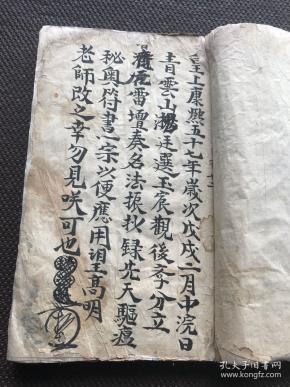 皇上康熙五十七年歲次戊戌二月中浣日
青雲山楊廷選玉宸觀後學分立
雷壇奏名法振抄錄先天驅瘟
秘奧符書一宗以便應用望高明
老師改之幸勿見咲可也
孔夫子旧书网